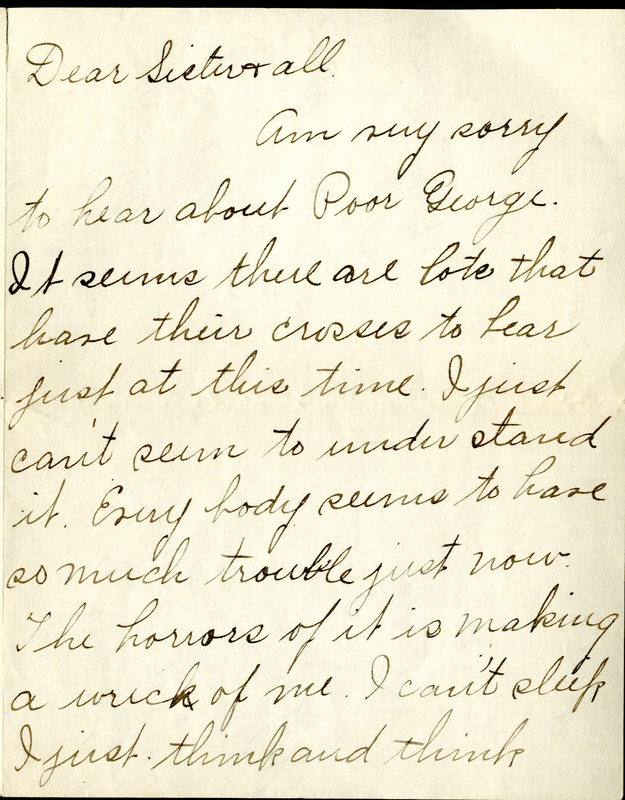 Dear Sister & all.
Am very sorry
to hear about Poor George.
It seems there are lots that
have their crosses to bear
just at this time. I just
can't seem to under stand
it. Every body seems to have
so much trouble just now.
The horrors of it is making
a wreck of me. I can't sleep
I just. think and think